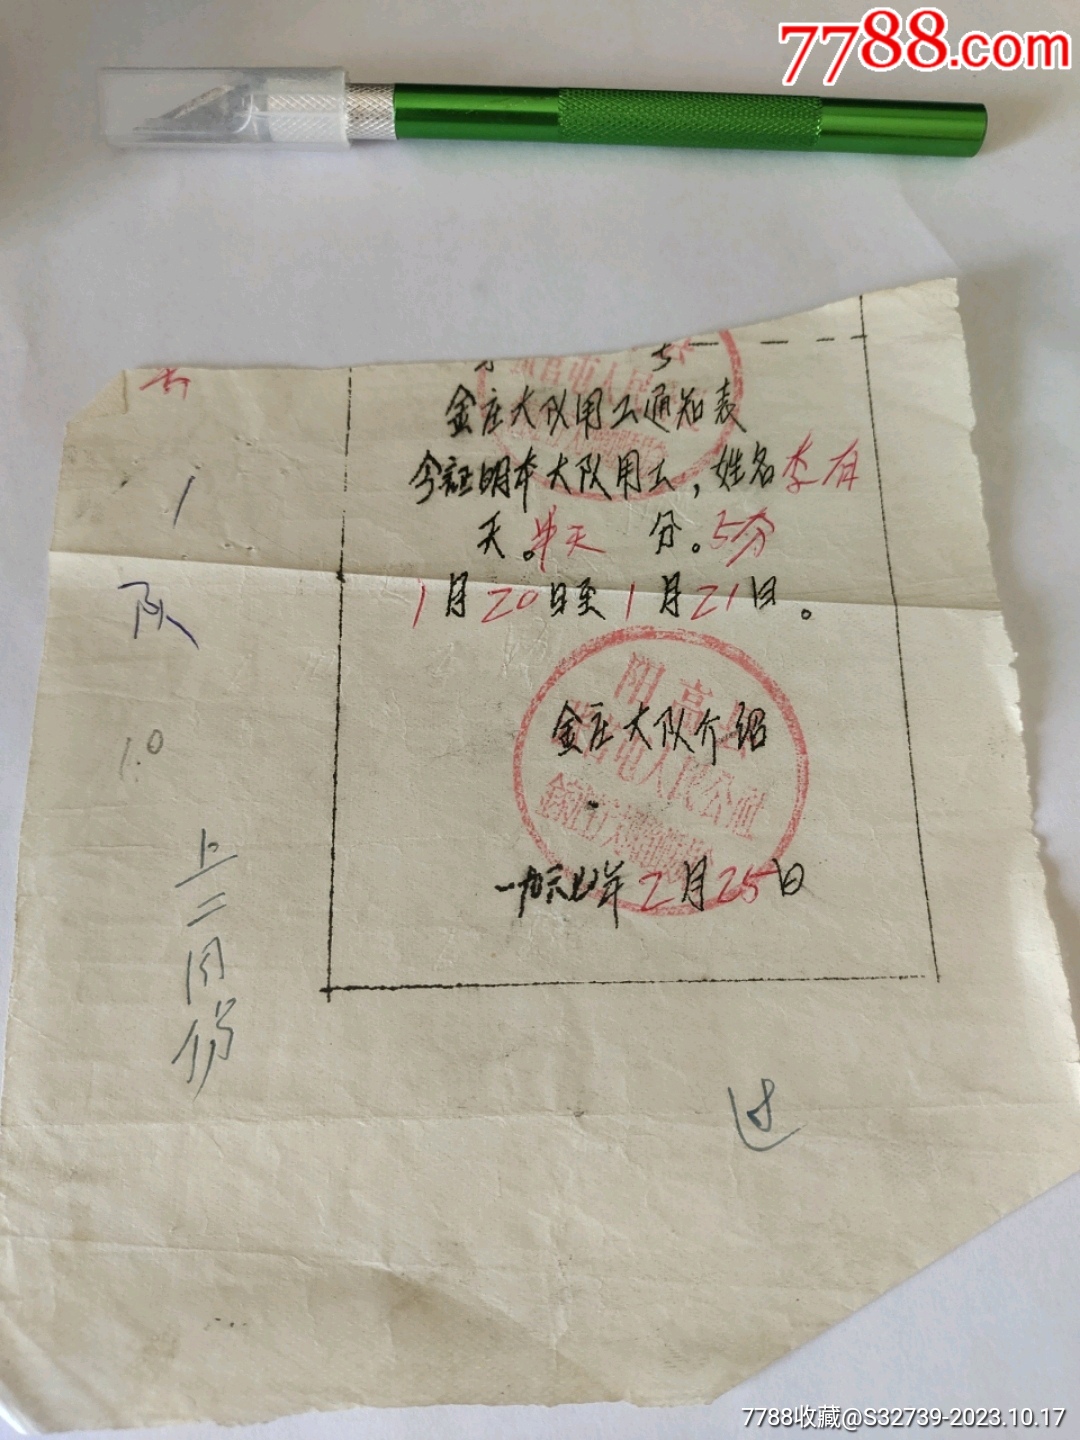 7788.com
金庄大队用工通知表
今证明本大队用工，姓名李有
天。半天 分。5分
1月20日至1月21日。
阳高县
人民公社
金庄大队介绍
一九六七年2月25日
1
队
1.0
上二同份
过
7788收藏@S32739-2023.10.17